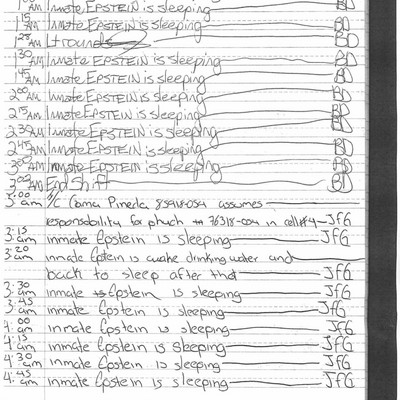 AM Inmate EPSTEIN is sleeping BD
1:15 AM Inmate EPSTEIN is sleeping BD
AM Lt rounds BD
1:30 AM Inmate EPSTEIN is sleeping BD
1:45 AM Inmate EPSTEIN is sleeping BD
2:00 AM Inmate EPSTEIN is sleeping BD
2:15 AM Inmate EPSTEIN is sleeping BD
2:30 AM Inmate EPSTEIN is sleeping BD
2:45 AM Inmate EPSTEIN is sleeping BD
3:00 AM Inmate EPSTEIN is sleeping BD
AM End Shift BD
3:00 am I/C Coma Pineda 85918-054 assumes
responsibility for 76318-054 in cell #4 JfG
3:15 am inmate Epstein is sleeping JfG
3:20 am inmate Epstein is awake drinking water and
back to sleep after that JfG
3:30 am inmate Epstein is sleeping JfG
3:45 am inmate Epstein is sleeping JfG
4:00 am inmate Epstein is sleeping JfG
4:15 am inmate Epstein is sleeping JfG
4:30 am inmate Epstein is sleeping JfG
4:45 am inmate Epstein is sleeping JfG